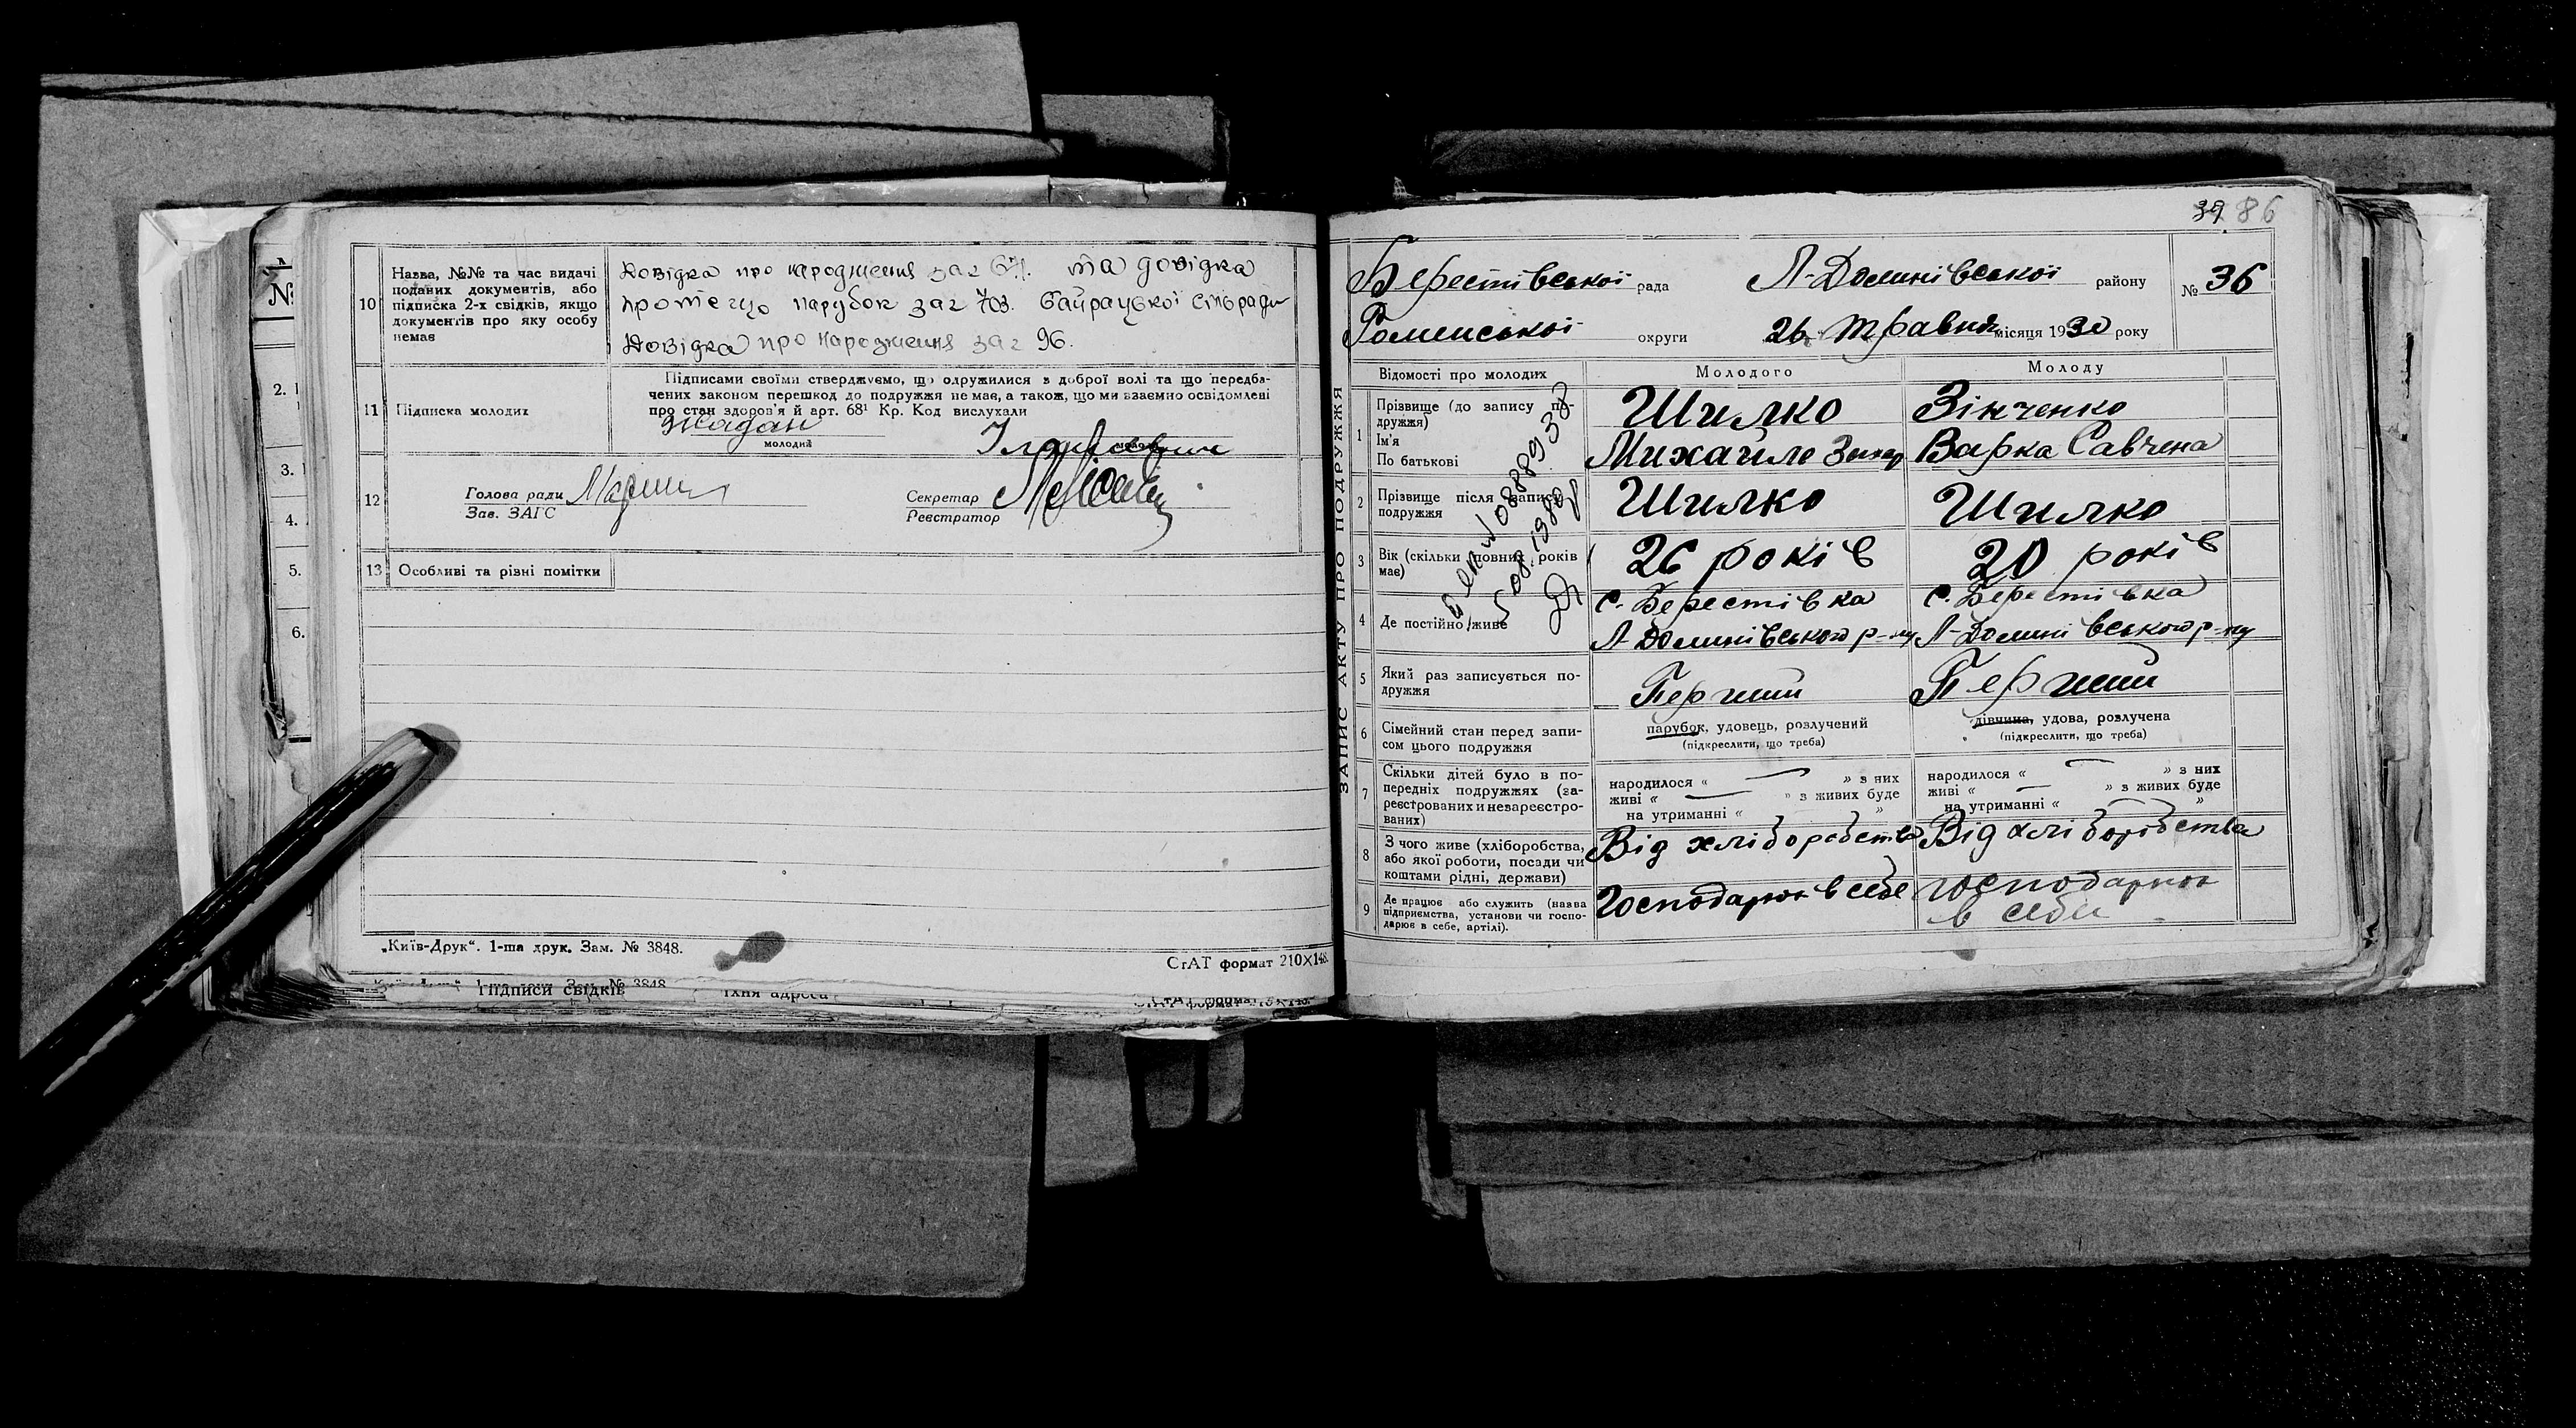 10 Назва, №№ та час видачі
поданих документів, або
підписка 2-х свідків, якщо
документів про яку особу
немає
Довідка про народження за г 671. та довідка
про те що парубок за г 703. Байрацької сільради
Довідка про народження за г 96.
11 Підписка молодих
Підписами своїми стверджуємо, що одружилися з доброї волі та що передба-
чених законом перешкод до подружжя не має, а також, що ми взаємно освідомлені
про стан здоров'я й арт. 68¹ Кр. Код вислухали
Жадан
молодий
12 Голова ради
Зав. ЗАГС
Секретар
Реєстратор
13 Особливі та різні помітки
„Київ-Друк“. 1-ша друк. Зам. № 3848.
СтАТ формат 210×148.
Підписи свідків
їхня адреса
№
2.
3.
4.
5.
6.
39 86
Берестівської рада Л-Долинівської району № 36
Роменської округи 26 травня місяця 1930 року
ЗАПИС АКТУ ПРО ПОДРУЖЖЯ
Відомості про молодих Молодого Молоду
1 Прізвище (до запису по-
дружжя) Шилко Зінченко
Ім'я
По батькові Михайло Захар Варка Савчена
2 Прізвище після запису
подружжя Шилко Шилко
3 Вік (скільки повних років
має) 26 років 20 років
4 Де постійно живе с. Берестівка с. Берестівка
Л-Долинівського р-ну Л-Долинівського р-ну
5 Який раз записується по-
дружжя Перший Перший
6 Сімейний стан перед запи-
сом цього подружжя
парубок, удовець, розлучений
(підкреслити, що треба)
дівчина, удова, розлучена
(підкреслити, що треба)
7 Скільки дітей було в по-
передніх подружжях (за-
реєстрованих и незареєстро-
ваних)
народилося « — » з них
живі « — » з живих буде
на утриманні « »
народилося « — » з них
живі « — » з живих буде
на утриманні « — »
8 З чого живе (хліборобства,
або якої роботи, посади чи
коштами рідні, держави)
Від хліборобства Від хліборобства
9 Де працює або служить (назва
підприємства, установи чи госпо-
дарює в себе, артілі).
Господарює в себе господарює
в себе